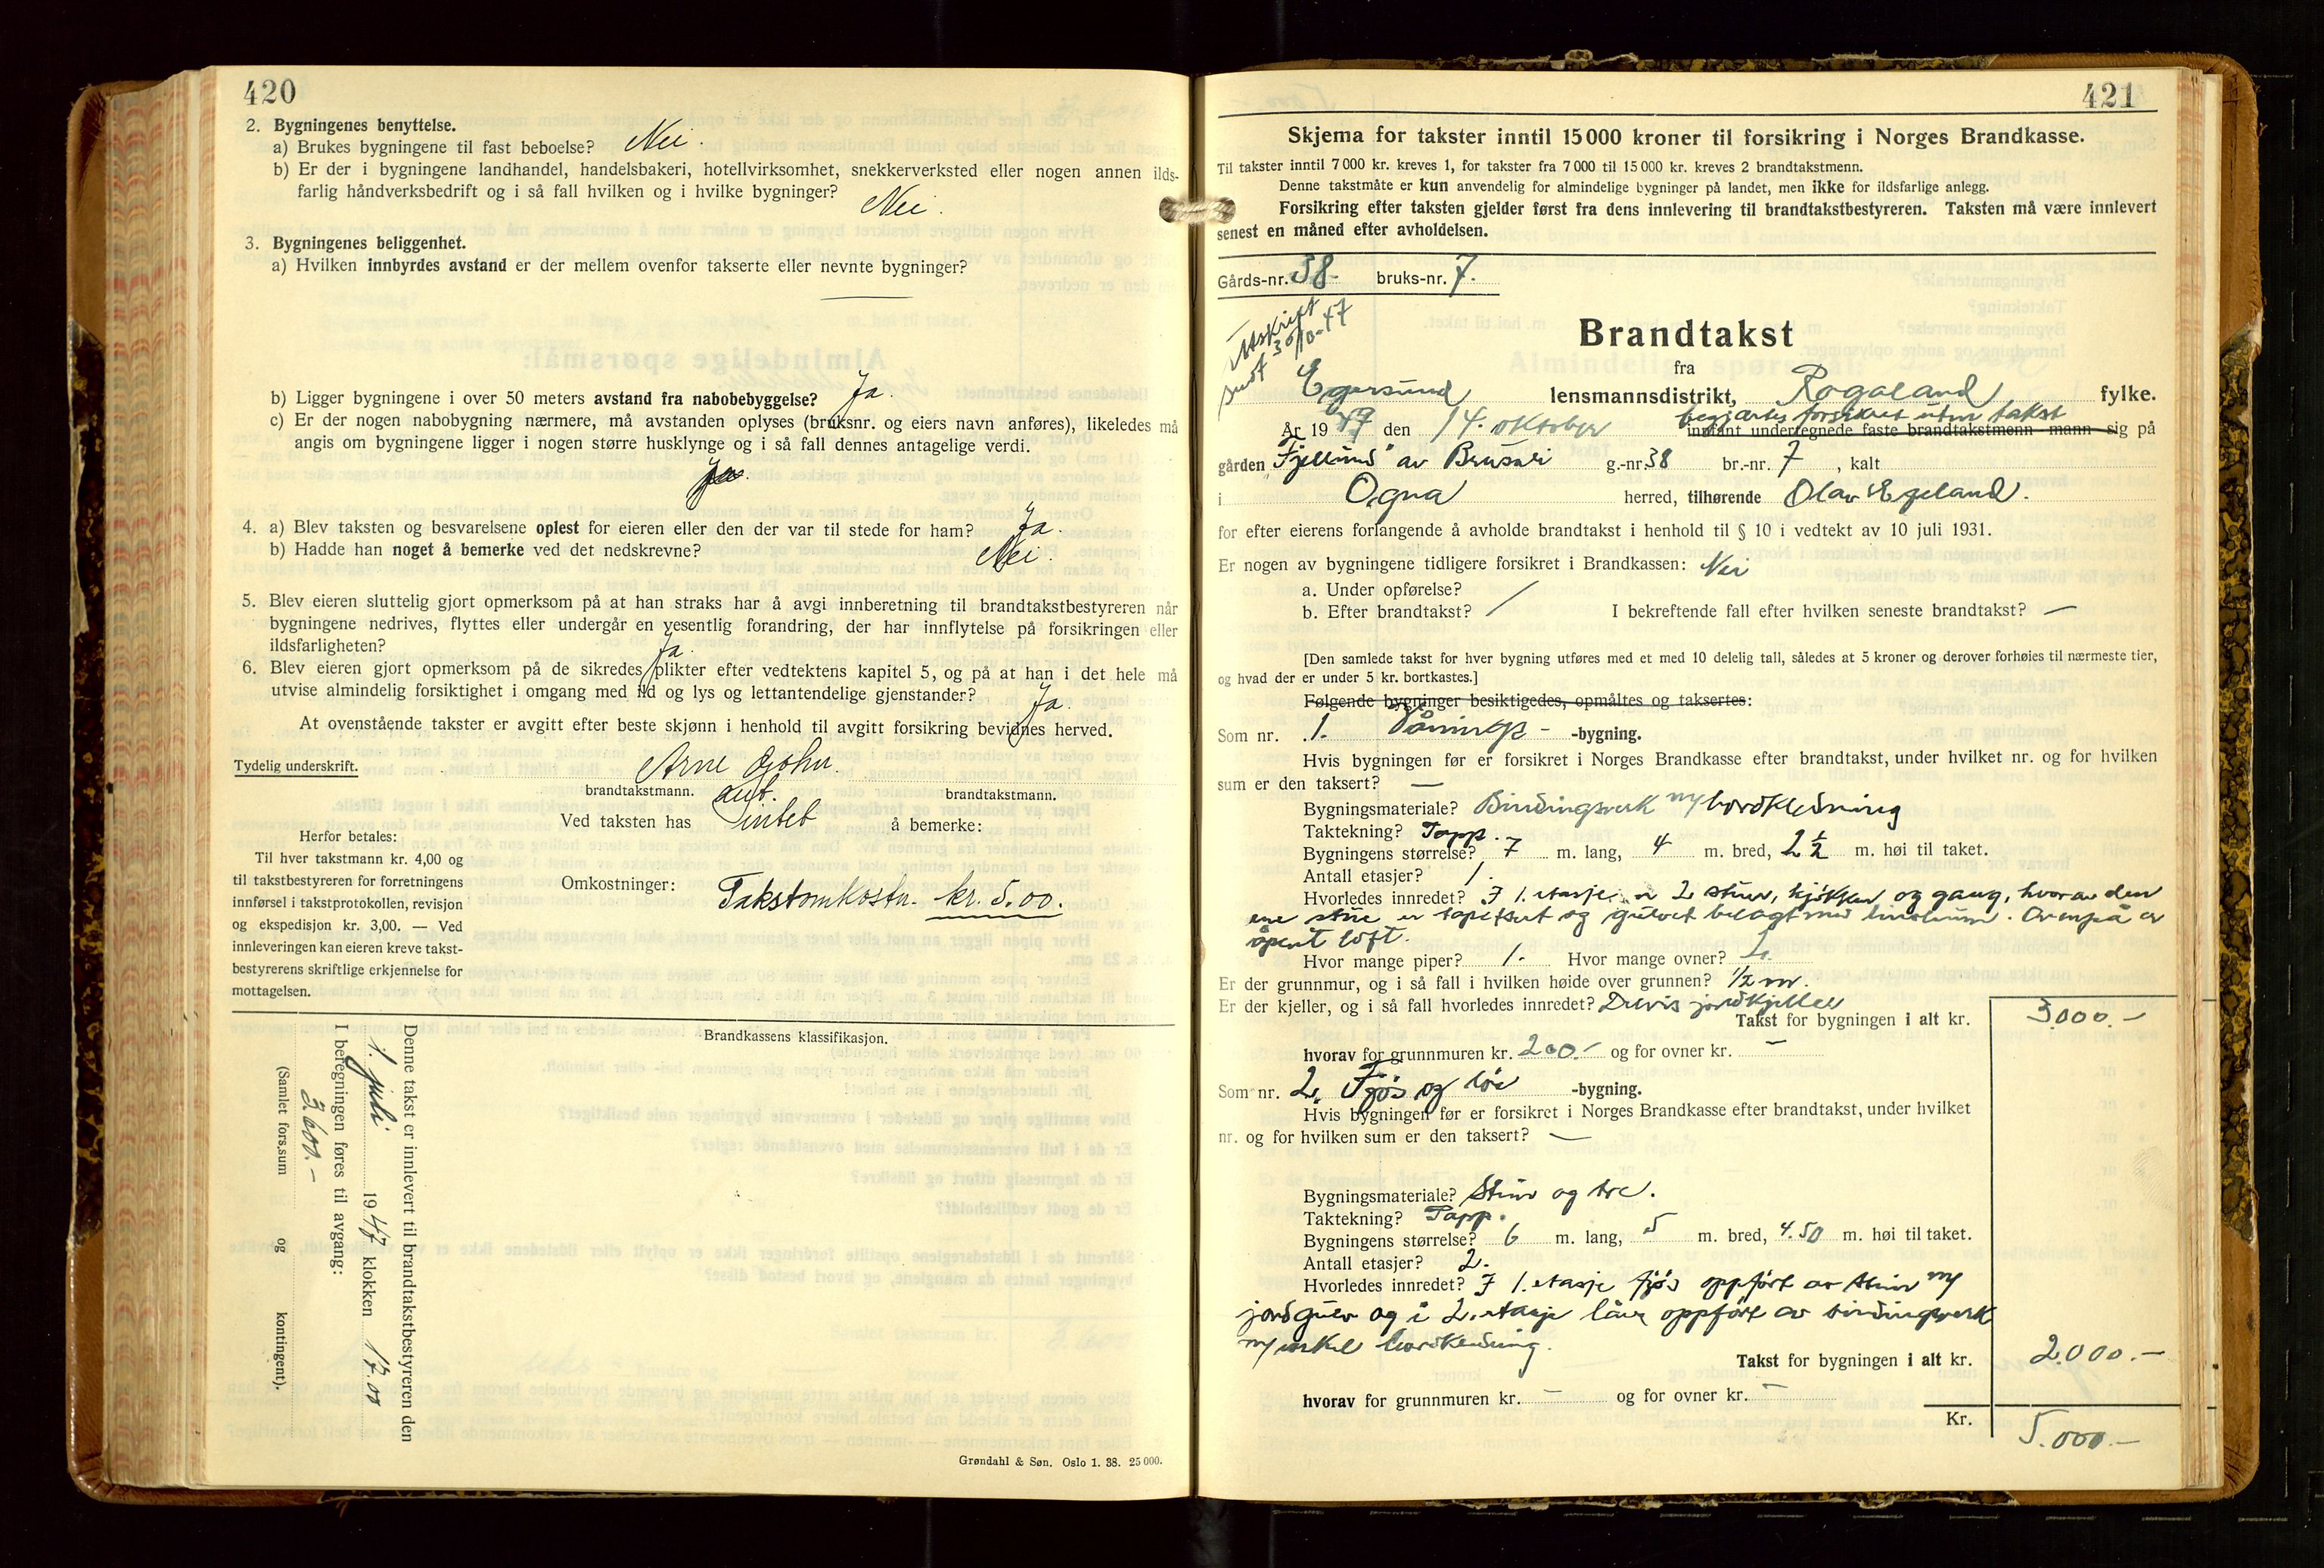 420
2. Bygningenes benyttelse.
a) Brukes bygningene til fast beboelse? Nei.
b) Er der i bygningene landhandel, handelsbakeri, hotellvirksomhet, snekkerverksted eller nogen annen ilds-
farlig håndverksbedrift og i så fall hvilken og i hvilke bygninger? Nei.
3. Bygningenes beliggenhet.
a) Hvilken innbyrdes avstand er der mellem ovenfor takserte eller nevnte bygninger?
b) Ligger bygningene i over 50 meters avstand fra nabobebyggelse? Ja.
c) Er der nogen nabobygning nærmere, må avstanden oplyses (bruksnr. og eiers navn anføres), likeledes må
angis om bygningene ligger i nogen større husklynge og i så fall dennes antagelige verdi.
4. a) Blev taksten og besvarelsene oplest for eieren eller den der var til stede for ham? Ja.
b) Hadde han noget å bemerke ved det nedskrevne? Nei
5. Blev eieren sluttelig gjort opmerksom på at han straks har å avgi innberetning til brandtakstbestyreren når
bygningene nedrives, flyttes eller undergår en vesentlig forandring, der har innflytelse på forsikringen eller
ildsfarligheten? Ja.
6. Blev eieren gjort opmerksom på de sikredes plikter efter vedtektens kapitel 5, og på at han i det hele må
utvise almindelig forsiktighet i omgang med ild og lys og lettantendelige gjenstander? Ja.
At ovenstående takster er avgitt efter beste skjønn i henhold til avgitt forsikring bevidnes herved.
Tydelig underskrift. Arne
brandtakstmann. brandtakstmann.
Ved taksten has intet å bemerke:
Herfor betales:
Til hver takstmann kr. 4,00 og
til takstbestyreren for forretningens
innførsel i takstprotokollen, revisjon
og ekspedisjon kr. 3,00. — Ved
innleveringen kan eieren kreve takst-
bestyrerens skriftlige erkjennelse for
mottagelsen.
Omkostninger: Takstomkostn. kr. 5.00.
Brandkassens klassifikasjon.
Denne takst er innlevert til brandtakstbestyreren den
1. juli 1947 klokken 17.00
I beregningen føres til avgang:
3.600.-
(Samlet fors.sum og kontingent).
Grøndahl & Søn. Oslo 1. 38. 25 000.
421
Skjema for takster inntil 15 000 kroner til forsikring i Norges Brandkasse.
Til takster inntil 7 000 kr. kreves 1, for takster fra 7 000 til 15 000 kr. kreves 2 brandtakstmenn.
Denne takstmåte er kun anvendelig for almindelige bygninger på landet, men ikke for ildsfarlige anlegg.
Forsikring efter taksten gjelder først fra dens innlevering til brandtakstbestyreren. Taksten må være innlevert
senest en måned efter avholdelsen.
Gårds-nr. 38. bruks-nr. 7.
Utskrift
sendt 30/10-47
Brandtakst
fra
Egersund lensmannsdistrikt, Rogaland fylke.
begjærtes forsikret uten takst
År 1947 den 14. oktober innfant undertegnede faste brandtakstmenn mann sig på
gården "Fjellund" av Brusali g.-nr. 38 br.-nr. 7, kalt
i Ogna herred, tilhørende Olav Egeland.
for efter eierens forlangende å avholde brandtakst i henhold til § 10 i vedtekt av 10 juli 1931.
Er nogen av bygningene tidligere forsikret i Brandkassen: Nei
a. Under opførelse?
b. Efter brandtakst? / I bekreftende fall efter hvilken seneste brandtakst? —
[Den samlede takst for hver bygning utføres med et med 10 delelig tall, således at 5 kroner og derover forhøies til nærmeste tier,
og hvad der er under 5 kr. bortkastes.]
Følgende bygninger besiktigedes, opmåltes og taksertes:
Som nr. 1. Vånings- -bygning.
Hvis bygningen før er forsikret i Norges Brandkasse efter brandtakst, under hvilket nr. og for hvilken
sum er den taksert? —
Bygningsmateriale? Bindingsverk m/ bordkledning
Taktekning? Papp.
Bygningens størrelse? 7 m. lang, 4 m. bred, 2 ½ m. høi til taket.
Antall etasjer? 1.
Hvorledes innredet? I 1. etasje er 2 stuer, kjøkken og gang, hvorav den
ene stue er tapetsert og gulvet belagt med linoleum. Ovenpå er
åpent loft.
Hvor mange piper? 1. Hvor mange ovner? 2.
Er der grunnmur, og i så fall i hvilken høide over grunnen? 1/2 m.
Er der kjeller, og i så fall hvorledes innredet? Delvis jordkjeller
Takst for bygningen i alt kr. 3.000.-
hvorav for grunnmuren kr. 200.- og for ovner kr. -
Som nr. 2. Fjøs og løe -bygning.
Hvis bygningen før er forsikret i Norges Brandkasse efter brandtakst, under hvilket
nr. og for hvilken sum er den taksert? —
Bygningsmateriale? Stein og tre.
Taktekning? Papp.
Bygningens størrelse? 6 m. lang, 5 m. bred, 4.50 m. høi til taket.
Antall etasjer? 2.
Hvorledes innredet? I 1. etasje fjøs oppført av stein m/
jordgulv og i 2. etasje låve oppført av bindingsverk
m/ enkel bordkledning.
Takst for bygningen i alt kr. 2.000.-
hvorav for grunnmuren kr. - og for ovner kr. -
Kr. 5.000.-